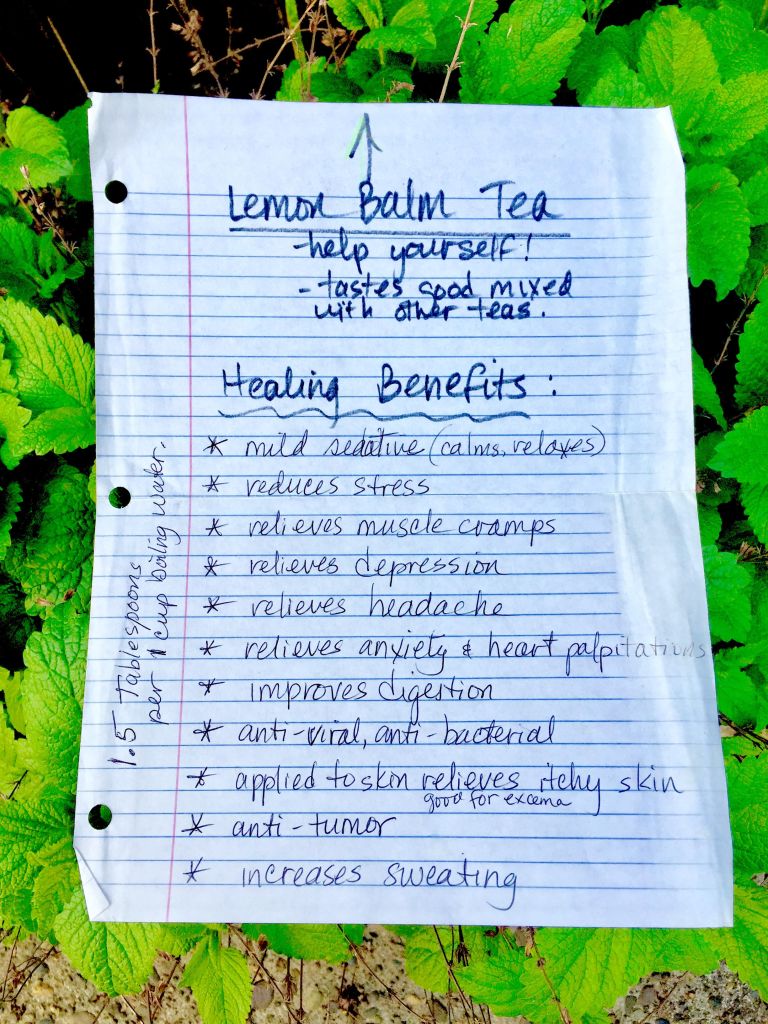 Lemon Balm Tea
-help yourself!
- tastes good mixed
with other teas.
Healing Benefits:
* mild sedative (calms, relaxes)
* reduces stress
* relieves muscle cramps
* relieves depression
* relieves headache
* relieves anxiety & heart palpitations
* improves digestion
* anti-viral, anti-bacterial
* applied to skin relieves itchy skin
good for excema
* anti-tumor
* increases sweating
1.5 Tablespoons
per 1 cup boiling water.